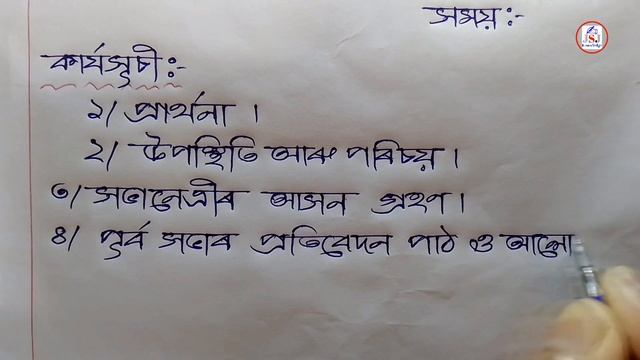 সময়:-
কাৰ্যসূচী:-
১/ প্ৰাৰ্থনা ।
২/ উপস্থিতি আৰু পৰিচয় ।
৩/ সভানেত্ৰীৰ আসন গ্ৰহণ ।
৪/ পূৰ্ব সভাৰ প্ৰতিবেদন পাঠ ও আলো